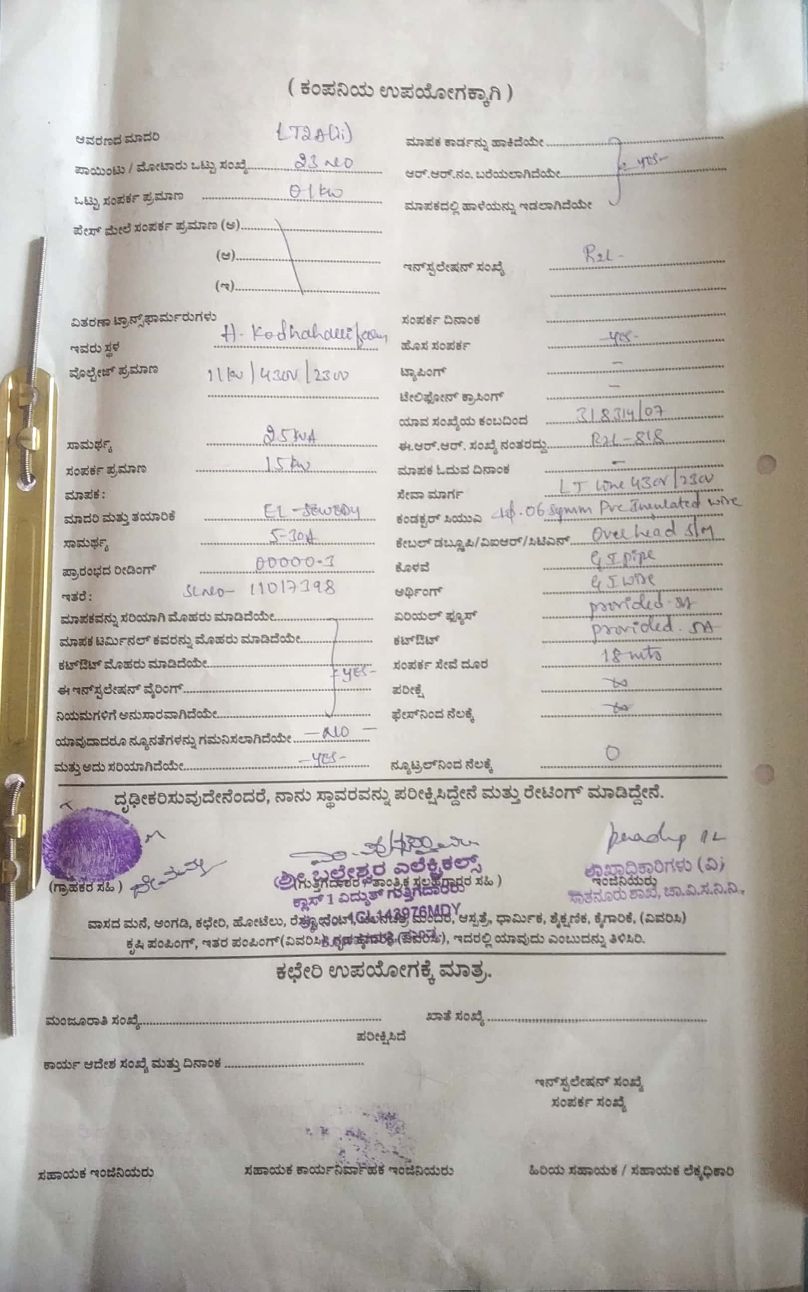 ( ಕಂಪನಿಯ ಉಪಯೋಗಕ್ಕಾಗಿ )
ಆವರಣದ ಮಾದರಿ LT2A(ii)
ಪಾಯಿಂಟು / ಮೋಟಾರು ಒಟ್ಟು ಸಂಖ್ಯೆ 23 NO
ಒಟ್ಟು ಸಂಪರ್ಕ ಪ್ರಮಾಣ 01 kw
ಫೇಸ್ ಮೇಲೆ ಸಂಪರ್ಕ ಪ್ರಮಾಣ (ಅ)
(ಆ)
(ಇ)
ವಿತರಣಾ ಟ್ರಾನ್ಸ್‌ಫಾರ್ಮರುಗಳು
ಇವರು ಸ್ಥಳ H. Kodhahalli
ವೋಲ್ಟೇಜ್ ಪ್ರಮಾಣ 11kv/430v/230v
ಸಾಮರ್ಥ್ಯ 25 kVA
ಸಂಪರ್ಕ ಪ್ರಮಾಣ 15 kw
ಮಾಪಕ :
ಮಾದರಿ ಮತ್ತು ತಯಾರಿಕೆ EL-SEWEDY
ಸಾಮರ್ಥ್ಯ 5-30A
ಪ್ರಾರಂಭದ ರೀಡಿಂಗ್ 00000-3
ಇತರೆ : SL NO- 11017398
ಮಾಪಕವನ್ನು ಸರಿಯಾಗಿ ಮೊಹರು ಮಾಡಿದೆಯೇ
ಮಾಪಕ ಟರ್ಮಿನಲ್ ಕವರನ್ನು ಮೊಹರು ಮಾಡಿದೆಯೇ
ಕಟ್‌ಔಟ್ ಮೊಹರು ಮಾಡಿದೆಯೇ
ಈ ಇನ್‌ಸ್ಟಲೇಷನ್ ವೈರಿಂಗ್ -YES-
ನಿಯಮಗಳಿಗೆ ಅನುಸಾರವಾಗಿದೆಯೇ
ಯಾವುದಾದರೂ ನ್ಯೂನತೆಗಳನ್ನು ಗಮನಿಸಲಾಗಿದೆಯೇ -NO-
ಮತ್ತು ಅದು ಸರಿಯಾಗಿದೆಯೇ -YES-
ಮಾಪಕ ಕಾರ್ಡನ್ನು ಹಾಕಿದೆಯೇ
ಆರ್.ಆರ್.ನಂ. ಬರೆಯಲಾಗಿದೆಯೇ YES-
ಮಾಪಕದಲ್ಲಿ ಹಾಳೆಯನ್ನು ಇಡಲಾಗಿದೆಯೇ
ಇನ್‌ಸ್ಟಲೇಷನ್ ಸಂಖ್ಯೆ R2L-
ಸಂಪರ್ಕ ದಿನಾಂಕ
ಹೊಸ ಸಂಪರ್ಕ -YES-
ಟ್ಯಾಪಿಂಗ್ -
ಟೇಲಿಫೋನ್ ಕ್ರಾಸಿಂಗ್ -
ಯಾವ ಸಂಖ್ಯೆಯ ಕಂಬದಿಂದ 318314/07
ಈ.ಆರ್.ಆರ್. ಸಂಖ್ಯೆ ನಂತರದ್ದು R2L-818
ಮಾಪಕ ಓದುವ ದಿನಾಂಕ -
ಸೇವಾ ಮಾರ್ಗ LT Line 430v/230v
ಕಂಡಕ್ಟರ್ ಸಿಯುಎ Pvc Insulated wire
ಕೇಬಲ್ ಡಬ್ಲ್ಯೂಪಿ/ವಿಐಆರ್/ಸಿಟಿಎನ್ Over head
ಕೊಳವೆ GI pipe
ಅರ್ಥಿಂಗ್ GI wire
ಏರಿಯಲ್ ಫ್ಯೂಸ್ provided. 5A
ಕಟ್‌ಔಟ್ provided. 5A
ಸಂಪರ್ಕ ಸೇವೆ ದೂರ 18 mts
ಪರೀಕ್ಷೆ ∞
ಫೇಸ್‌ನಿಂದ ನೆಲಕ್ಕೆ ∞
ನ್ಯೂಟ್ರಲ್‌ನಿಂದ ನೆಲಕ್ಕೆ 0
ದೃಢೀಕರಿಸುವುದೇನೆಂದರೆ, ನಾನು ಸ್ಥಾವರವನ್ನು ಪರೀಕ್ಷಿಸಿದ್ದೇನೆ ಮತ್ತು ರೇಟಿಂಗ್ ಮಾಡಿದ್ದೇನೆ.
(ಗ್ರಾಹಕರ ಸಹಿ )
ಶ್ರೀ ಬಲೇಶ್ವರ ಎಲೆಕ್ಟ್ರಿಕಲ್ಸ್
(ಗುತ್ತಿಗೆದಾರರ / ತಾಂತ್ರಿಕ ಸಲಹೆಗಾರರ ಸಹಿ )
ಕ್ಲಾಸ್ 1 ವಿದ್ಯುತ್ ಗುತ್ತಿಗೆದಾರರು
ಶಾಖಾಧಿಕಾರಿಗಳು (ವಿ)
ಇಂಜಿನಿಯರು
ಸಾತನೂರು ಶಾಖೆ, ಚಾ.ವಿ.ಸ.ನಿ.ನಿ.,
ವಾಸದ ಮನೆ, ಅಂಗಡಿ, ಕಛೇರಿ, ಹೋಟೆಲು, ಮಂದಿರ, ಆಸ್ಪತ್ರೆ, ಧಾರ್ಮಿಕ, ಶೈಕ್ಷಣಿಕ, ಕೈಗಾರಿಕೆ, (ವಿವರಿಸಿ)
ಕೃಷಿ ಪಂಪಿಂಗ್, ಇತರ ಪಂಪಿಂಗ್(ವಿವರಿಸಿ), (ವಿವರಿಸಿ), ಇದರಲ್ಲಿ ಯಾವುದು ಎಂಬುದನ್ನು ತಿಳಿಸಿರಿ.
ಕಛೇರಿ ಉಪಯೋಗಕ್ಕೆ ಮಾತ್ರ.
ಮಂಜೂರಾತಿ ಸಂಖ್ಯೆ ಖಾತೆ ಸಂಖ್ಯೆ
ಪರೀಕ್ಷಿಸಿದೆ
ಕಾರ್ಯ ಆದೇಶ ಸಂಖ್ಯೆ ಮತ್ತು ದಿನಾಂಕ
ಇನ್‌ಸ್ಟಲೇಷನ್ ಸಂಖ್ಯೆ
ಸಂಪರ್ಕ ಸಂಖ್ಯೆ
ಸಹಾಯಕ ಇಂಜಿನಿಯರು ಸಹಾಯಕ ಕಾರ್ಯನಿರ್ವಾಹಕ ಇಂಜಿನಿಯರು ಹಿರಿಯ ಸಹಾಯಕ / ಸಹಾಯಕ ಲೆಕ್ಕಧಿಕಾರಿ